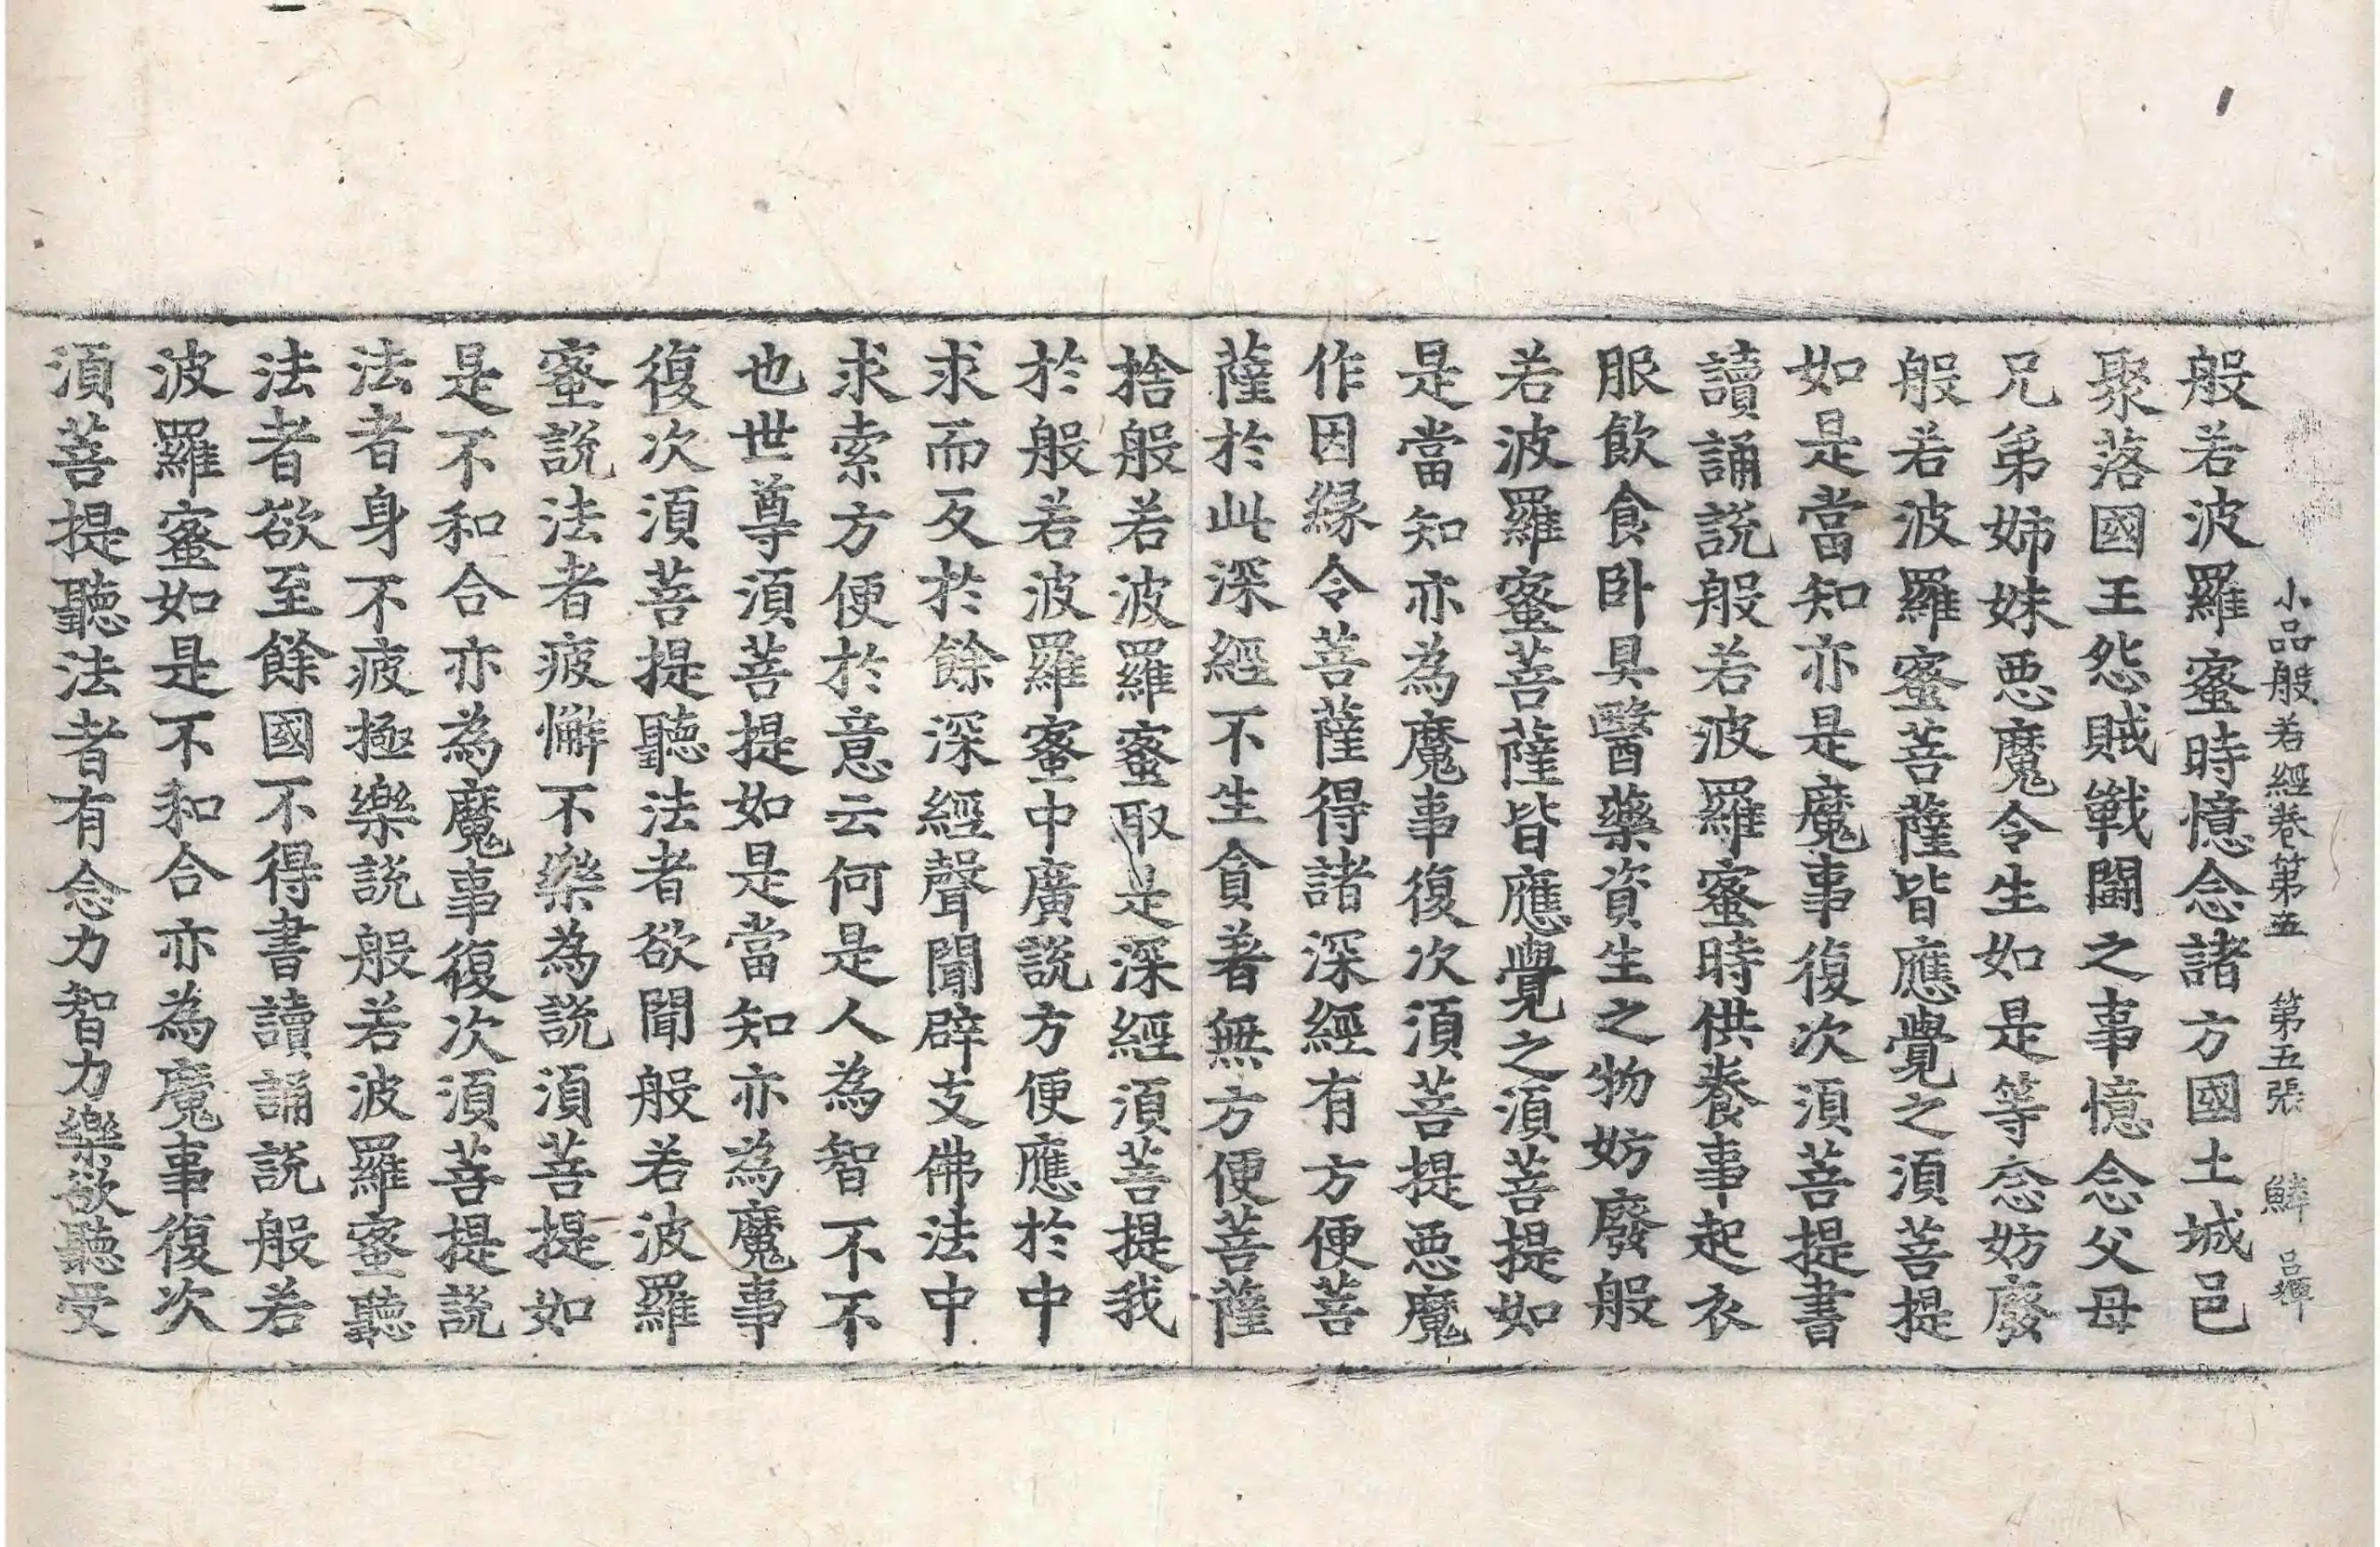 小品般若經卷第五 第五張 鱗 呂輝
般若波羅蜜時憶念諸方國土城邑
聚落國王怨賊戰鬪之事憶念父母
兄弟姉妹惡魔令生如是等念妨廢
般若波羅蜜菩薩皆應覺之湏菩提
如是當知亦是魔事復次湏菩提書
讀誦説般若波羅蜜時供養事起衣
服飲食卧具醫藥資生之物妨廢般
若波羅蜜菩薩皆應覺之湏菩提如
是當知亦為魔事復次湏菩提惡魔
作因緣令菩薩得諸深經有方便菩
薩於此深經不生貪著無方便菩薩
捨般若波羅蜜取是深經湏菩提我
於般若波羅蜜中廣説方便應於中
求而反於餘深經聲聞辟支佛法中
求索方便於意云何是人為智不不
也世尊湏菩提如是當知亦為魔事
復次湏菩提聽法者欲聞般若波羅
蜜説法者疲懈不樂為説湏菩提如
是不和合亦為魔事復次湏菩提説
法者身不疲極樂説般若波羅蜜聽
法者欲至餘國不得書讀誦説般若
波羅蜜如是不和合亦為魔事復次
湏菩提聽法者有念力智力樂欲聽受